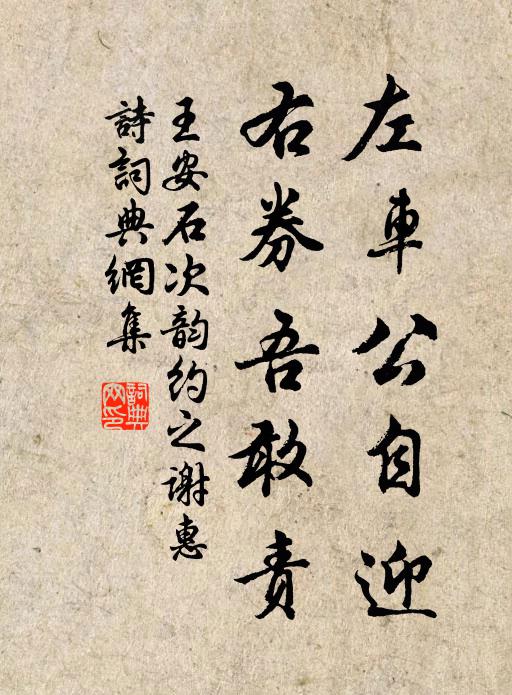 左車公自迎
右券吾敢責
王安石次韵約之謝惠
詩詞典網集
詞典
网印